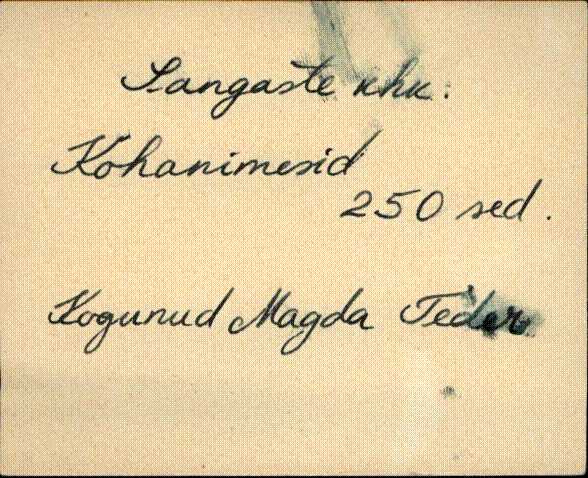 Sangaste khk.
Kohanimesid
250 sed.
Kogunud Magda Teder